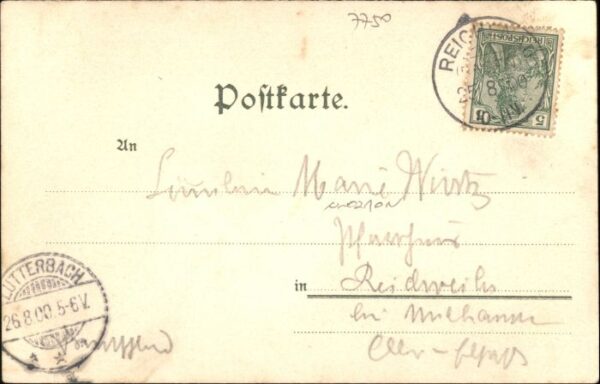 7750
REICH
25 8 00
REICHSPOST
5
Postkarte.
An
Fräulein Marie Wirtz
Pfarrhaus
in Reichweiler
bei Mülhausen
Ober-Elsass
LUTTERBACH
26.8.00.5-6V.